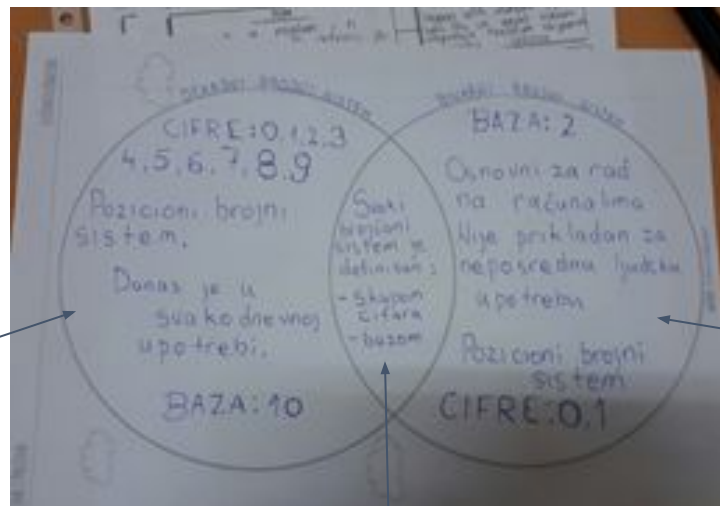 DEKADNI BROJNI SISTEM
CIFRE:0,1,2,3
4,5,6,7,8,9
Pozicioni brojni
sistem.
Danas je u
svakodnevnoj
upotrebi.
BAZA:10
Svaki
brojčani
sistem je
definisan:
-skupom
cifara
-bazom
BINARNI BROJNI SISTEM
BAZA:2
Osnovni za rad
na računalima
Nije prikladan za
neposrednu ljudsku
upotrebu
Pozicioni brojni
sistem
CIFRE:0,1